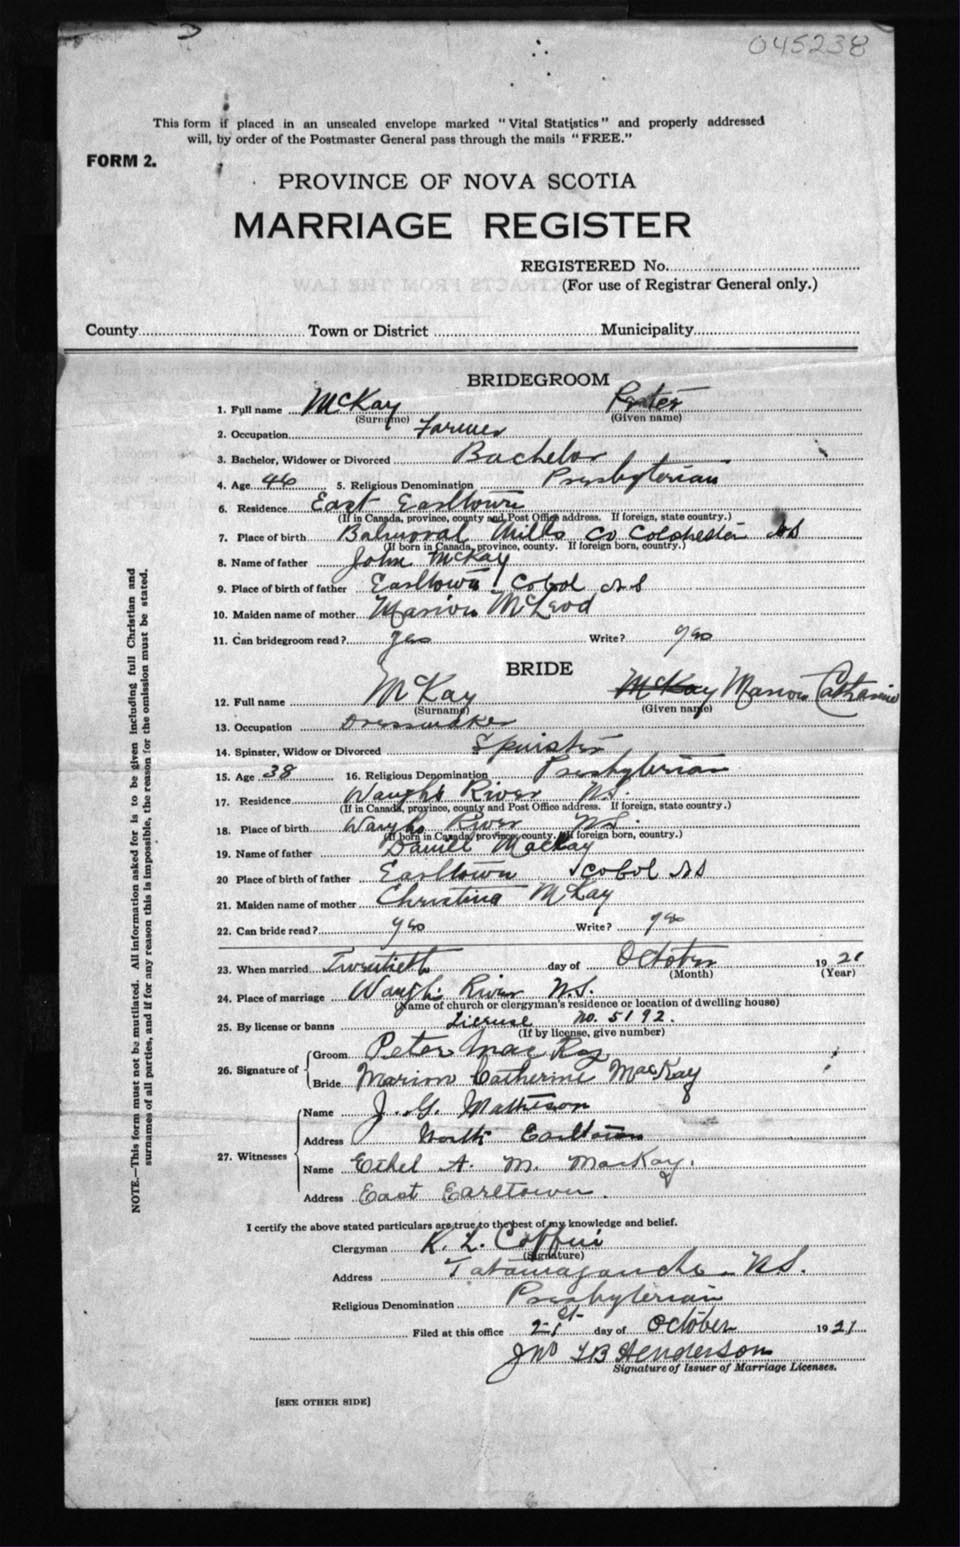 045238
This form if placed in an unsealed envelope marked "Vital Statistics" and properly addressed
will, by order of the Postmaster General pass through the mails "FREE."
FORM 2.
PROVINCE OF NOVA SCOTIA
MARRIAGE REGISTER
REGISTERED No.
(For use of Registrar General only.)
County Town or District Municipality
BRIDEGROOM
1. Full name McKay Peter
(Surname) (Given name)
2. Occupation Farmer
3. Bachelor, Widower or Divorced Bachelor
4. Age 46 5. Religious Denomination Presbyterian
6. Residence East Earltown
(If in Canada, province, county and Post Office address. If foreign, state country.)
7. Place of birth Balmoral Mills Co Colchester NS
(If born in Canada, province, county. If foreign born, country.)
8. Name of father John McKay
9. Place of birth of father Earltown Cobol NS
10. Maiden name of mother Marion McLeod
11. Can bridegroom read? yes Write? yes
BRIDE
12. Full name McKay McKay Marion Catharine
(Surname) (Given name)
13. Occupation Dressmaker
14. Spinster, Widow or Divorced Spinster
15. Age 38 16. Religious Denomination Presbyterian
17. Residence Waughs River NS.
(If in Canada, province, county and Post Office address. If foreign, state country.)
18. Place of birth Waughs River NS.
(If born in Canada, province, county. If foreign born, country.)
19. Name of father Daniel MacKay
20 Place of birth of father Earltown Cobol NS
21. Maiden name of mother Christina McKay
22. Can bride read? yes Write? yes
23. When married Twentieth day of October 1921
(Month) (Year)
24. Place of marriage Waughs River N.S.
(Name of church or clergyman's residence or location of dwelling house)
25. By license or banns License No. 5192.
(If by license, give number)
26. Signature of
Groom Peter MacKay
Bride Marion Catherine MacKay
27. Witnesses
Name J. G. Matheson
Address North Earltown
Name Ethel A. M. MacKay.
Address East Earltown.
I certify the above stated particulars are true to the best of my knowledge and belief.
Clergyman K. L. Coffin
(Signature)
Address Tatamagouche N.S.
Religious Denomination Presbyterian
Filed at this office 21st day of October 1921
Jno T B Henderson
Signature of Issuer of Marriage Licenses.
[SEE OTHER SIDE]
NOTE.—This form must not be mutilated. All information asked for is to be given including full Christian and
surnames of all parties, and if for any reason this is impossible, the reason for the omission must be stated.